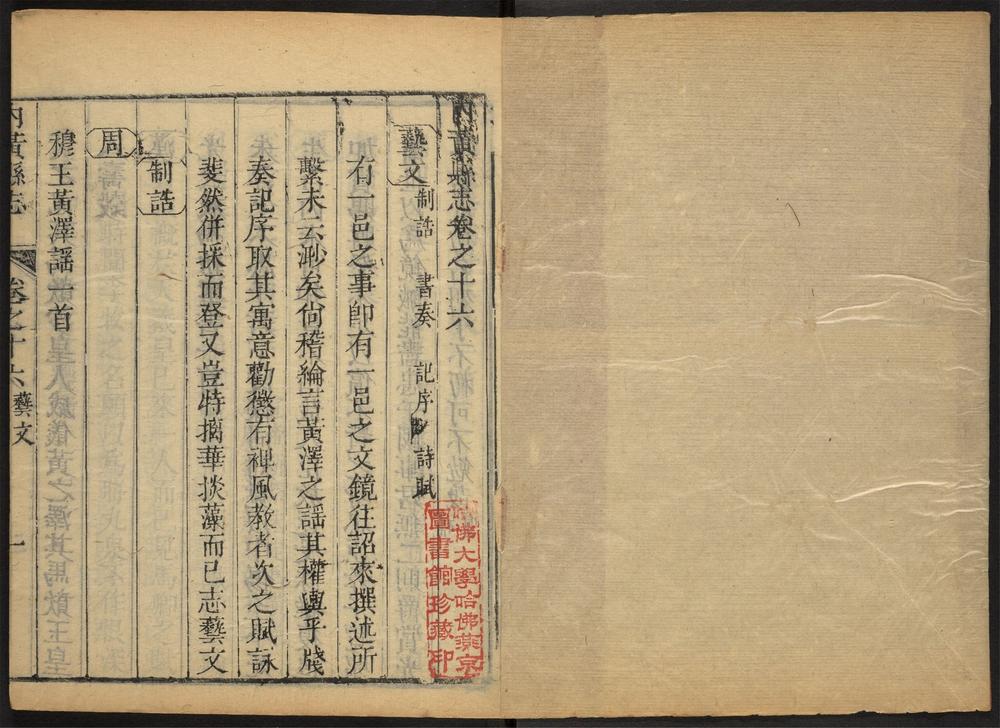 內黃縣志卷之十六
藝文 制誥 書奏 記序 詩賦
有一邑之事卽有一邑之文鏡往詔來撰述所
繫未云渺矣尙稽綸言黃澤之謠其權輿乎牋
奏記序取其寓意勸懲有裨風教者次之賦詠
斐然併採而登又豈特摛華掞藻而已志藝文
制誥
周
穆王黃澤謠一首
內黃縣志 卷之十六 藝文 一
哈佛大學哈佛燕京
圖書館珍藏印